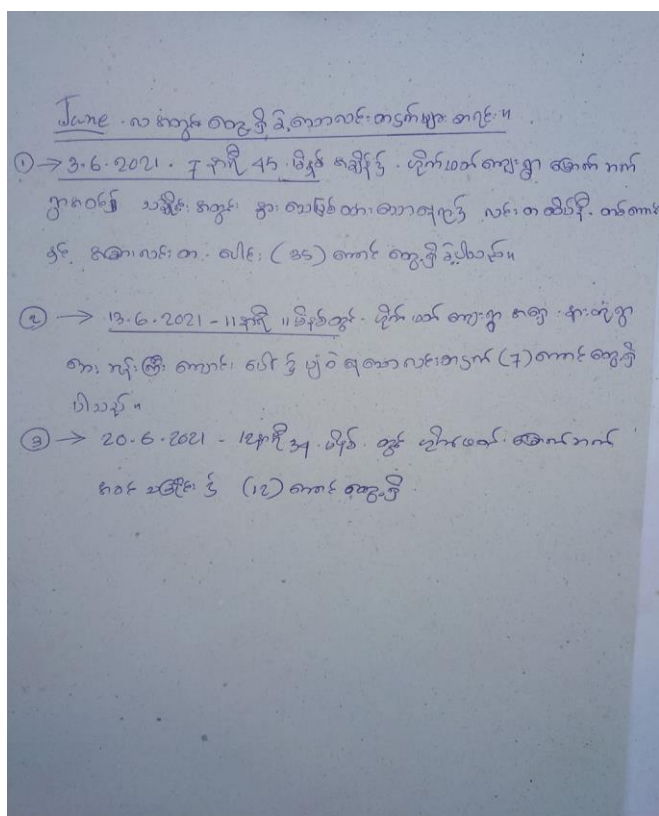 June လအတွင်း တွေ့ရှိခဲ့သောလင်းတငှက်များစာရင်း။
① → 3.6.2021 . 7 နာရီ 45 မိနစ် အချိန်၌ . ဟိုက်ဖတ်ကျေးရွာ မြောက်ဘက်
ရွာအဝင်ရှိ သချိုင်းအတွင်း နွားသေမြစ်ထားသောနေရာ၌ လင်းတခေါင်းနီ . တစ်ကောင်
နှင့် အခြားလင်းတ . ပေါင်း (35) ကောင် တွေ့ရှိခဲ့ပါသည်။
② → 13.6.2021 - 11 နာရီ 11 မိနစ်တွင် . ဟိုက်ဖတ်ကျေးရွာ အရှေ့
ဘုန်းကြီးကျောင်းပေါ်၌ ပျံဝဲနေသောလင်းတငှက် (7) ကောင် တွေ့ရှိ
ပါသည်။
③ → 20.6.2021 - 12 နာရီ 34 မိနစ် တွင် ဟိုက်ဖတ် မြောက်ဘက်
အဝင် သချိုင်း၌ (12) ကောင် တွေ့ရှိ